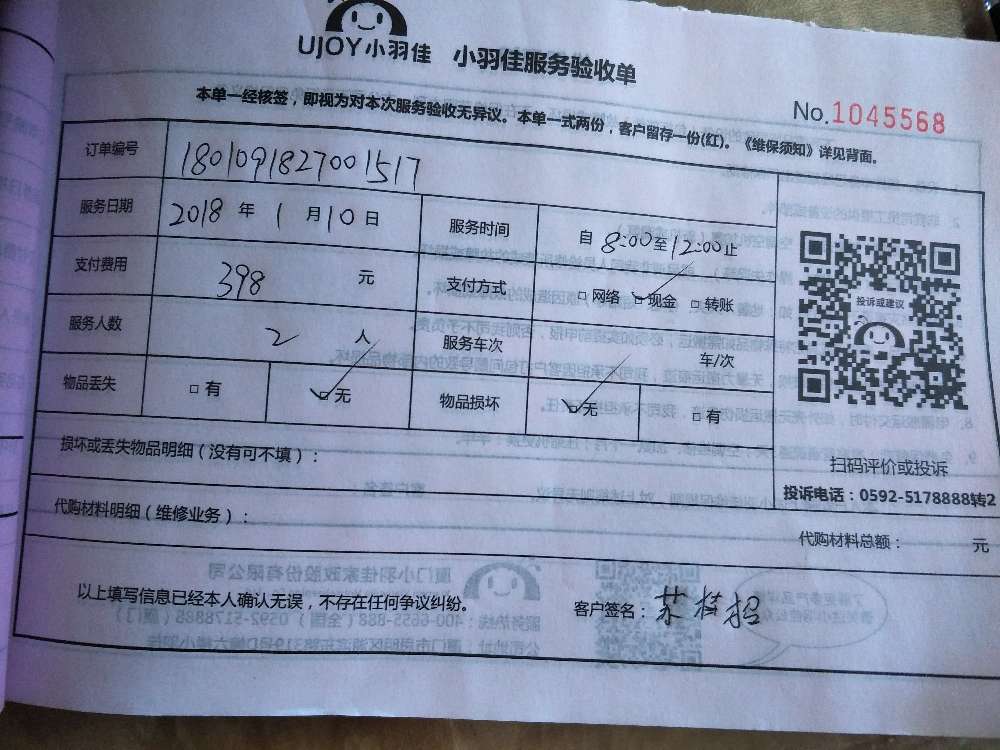 UJOY小羽佳 小羽佳服务验收单
No.1045568
本单一经核签，即视为对本次服务验收无异议。本单一式两份，客户留存一份(红)。《维保须知》详见背面。
订单编号 1801091827001517
服务日期 2018 年 1 月 10 日 服务时间 自 8:00 至 12:00 止
支付费用 398 元 支付方式 □ 网络 ☑ 现金 □ 转账
服务人数 2 人 服务车次 车/次
物品丢失 □ 有 ☑ 无 物品损坏 ☑ 无 □ 有
投诉或建议
扫码评价或投诉
投诉电话：0592-5178888转2
损坏或丢失物品明细（没有可不填）：
代购材料明细（维修业务）：
代购材料总额： 元
以上填写信息已经本人确认无误，不存在任何争议纠纷。 客户签名：苏桂招